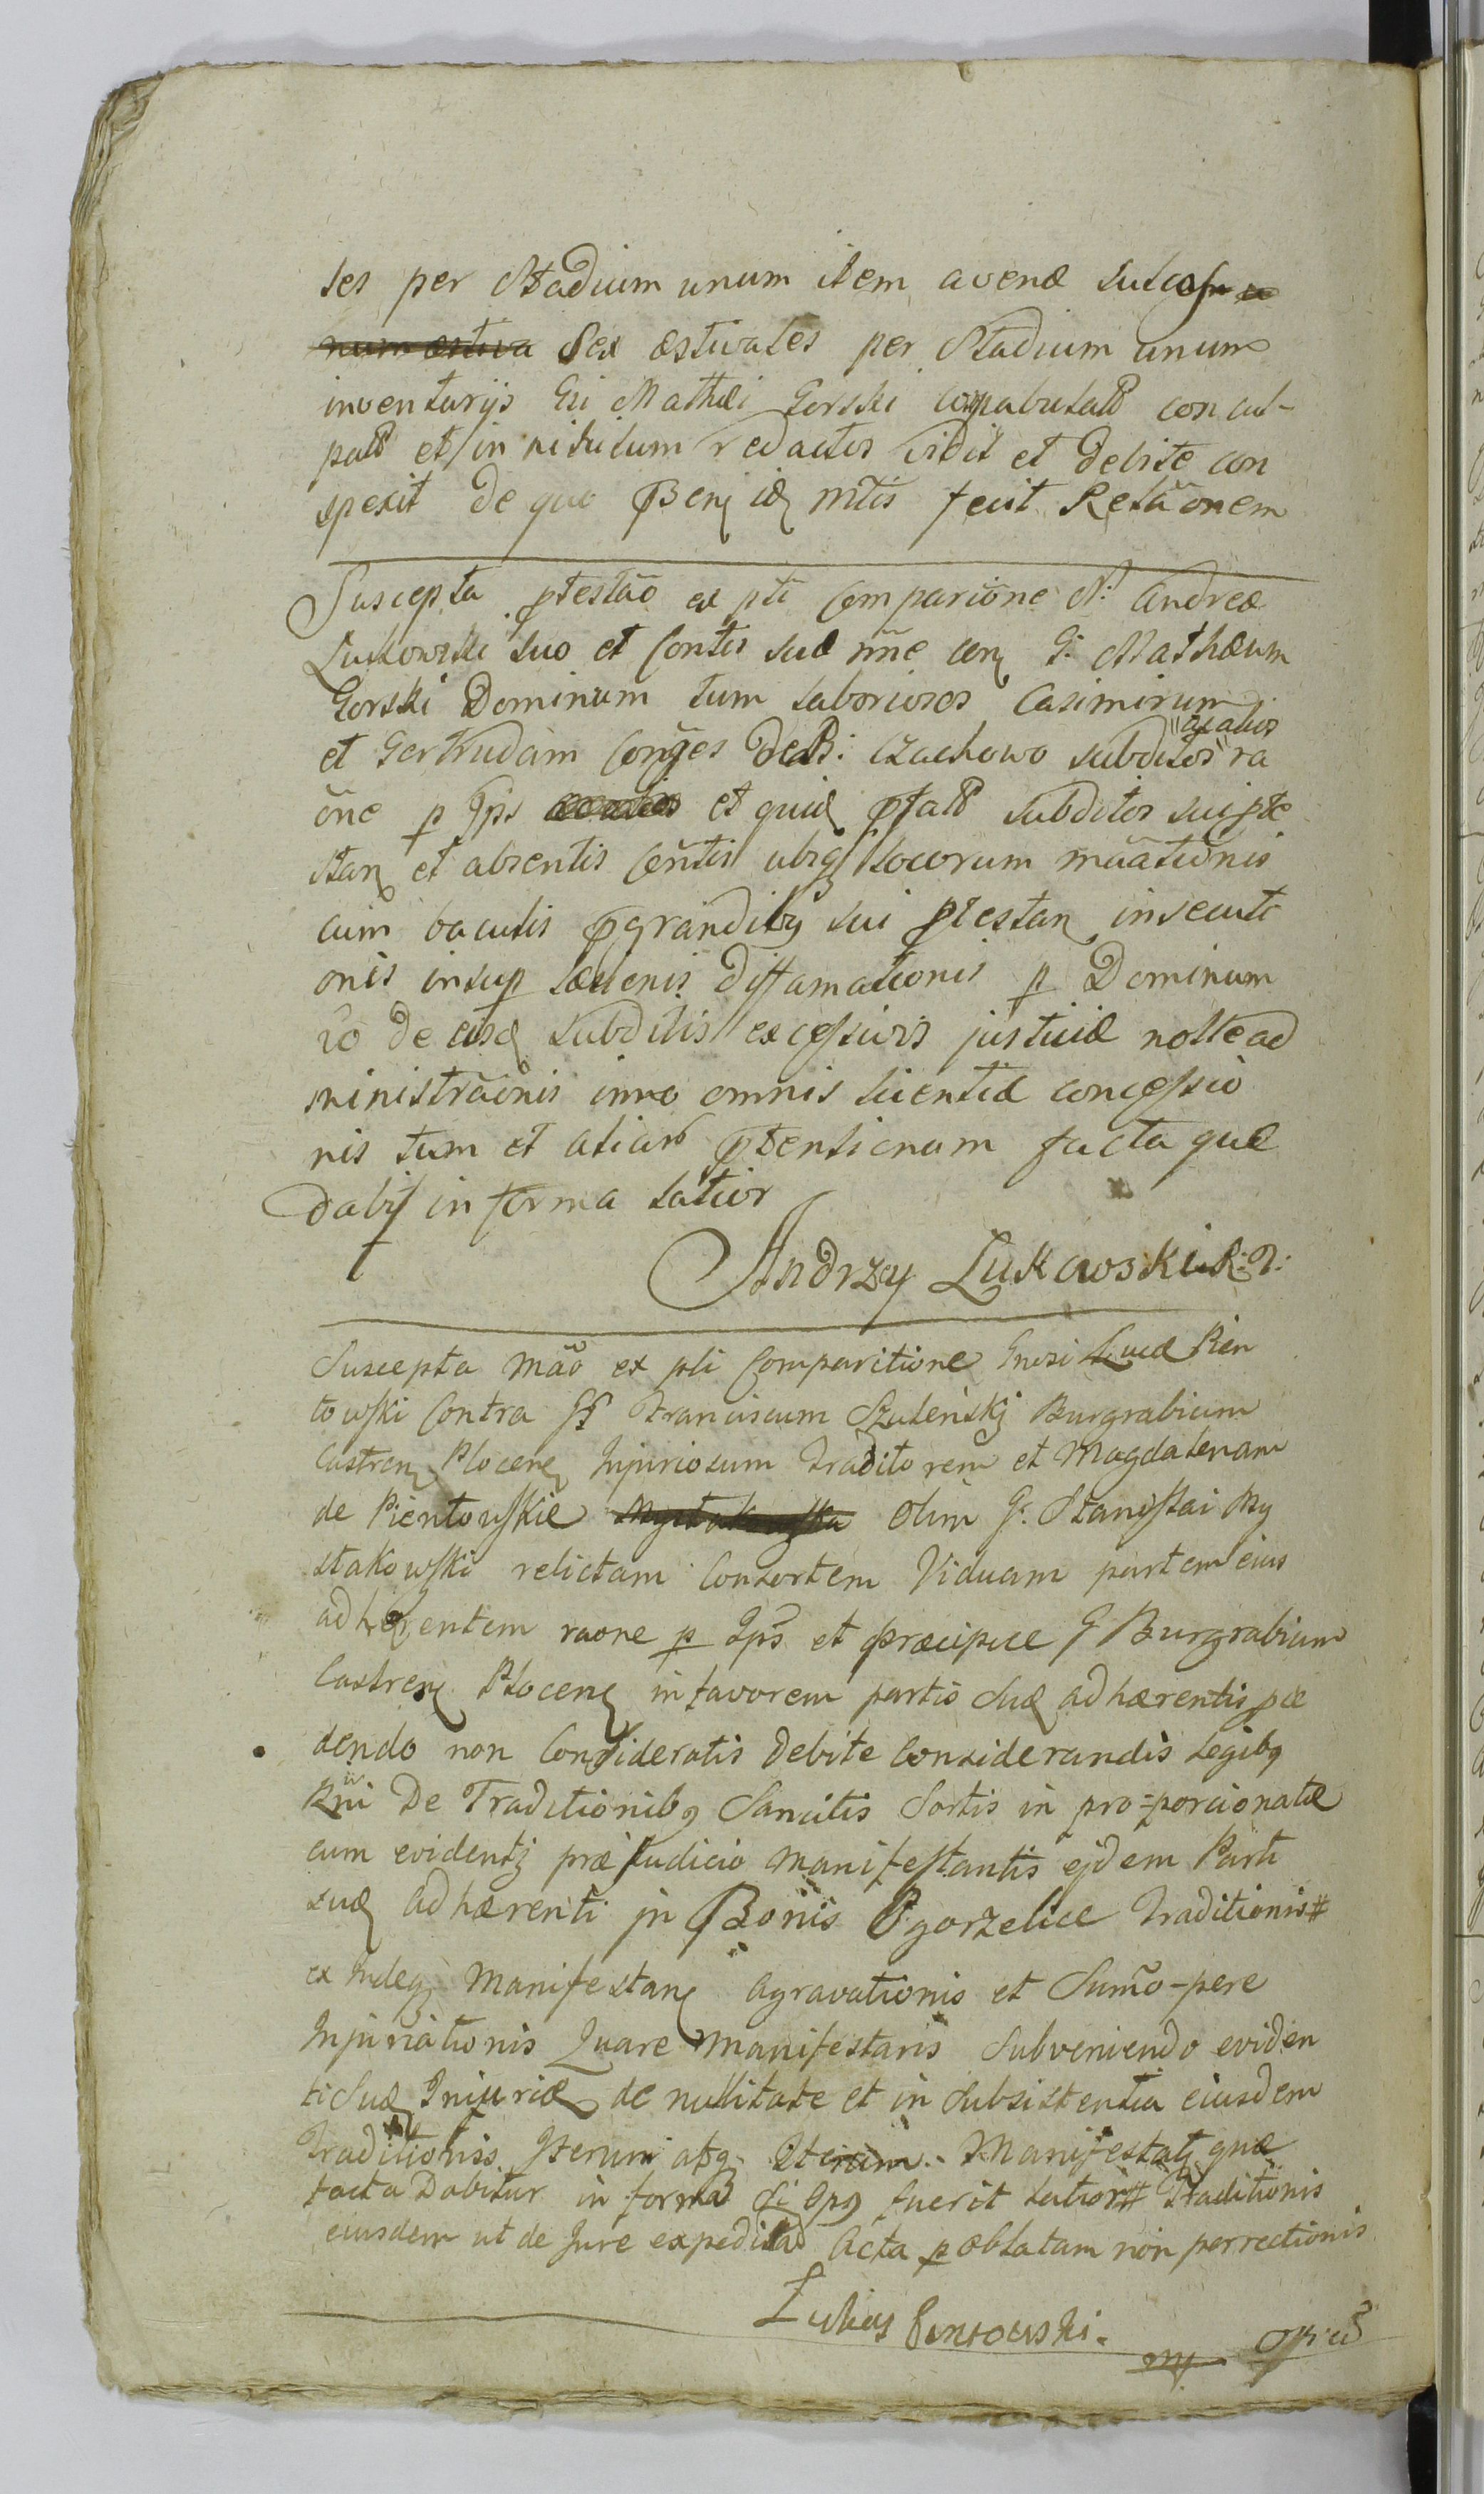 les per Stadium unum item avenæ sulcos u
num æstiva Sex æstivales per Stadium unum
inventarijs Gsi Mathæi Gorski compabulatos concul-
patos et in nihilum redactos vidit et debite con
spexit de quo Pñ idq Mtis fecit Relãonem
Suscepta ptestão ex pti Comparitione N: Andreæ
Lukowski suo et Contis suæ nñe conq G: Mathæum
Gorski Dominum tum laboriosos Casimirum
et Gertrudam Conges de B: Czachowo subditos "ra
õne p Ips et quidq pfatos subditos sui pte
stanq et absentis Contis ubiq locorum minãtionis
cum baculis pgrandibq sui ptestanq insecuti
onis insup scelenis diffamationis p Dominum
vo de eisdq subditis excessivis justitiæ nolle ad
ministrãonis immo omnis licentiæ concessio
nis tum et aliaro ptensionum facta quæ
dabit in forma latior
Andrzy Lukowski R: D:
Suscepta Mão ex pti Comparitione Gnosi Lucæ Pien
towski Contra G Franciscum Szulenskj Burgrabium
Castrenq Plocenq Injuriosum Traditorem et Magdalenam
de Pientowskie olim G. Stanislai My
stakowski relictam Consortem Viduam partem eius
adhærentem raone p Ips et præcipue G Burgrabium
Castrenq Plocenq in favorem partis suæ adhærentis pce
dendo non Consideratis debite considerandis Legibq
Rni De Traditionibq Sancitis Sortis in pro-porcionatæ
cum evidentj præjudicio Manifestantis ejdem Parti
suæ adhærenti in Bonis Pgorzelice Traditionis #
ex Indeq Manifestanq Agravationis et Sumo-pere
Injuriationis Quare Manifestans Subveniendo eviden
ti Suæ Iniuriæ de nullitate et in Subsistentia eiusdem
Traditionis Iterum atq Iterum. Manifestatj quæ
facta Dabitur in forma si Opq fuerit latiori # Traditionis
eiusdem ut de Jure expedita ad Acta p oblatam non porrectionis
Lukas Pientowski.